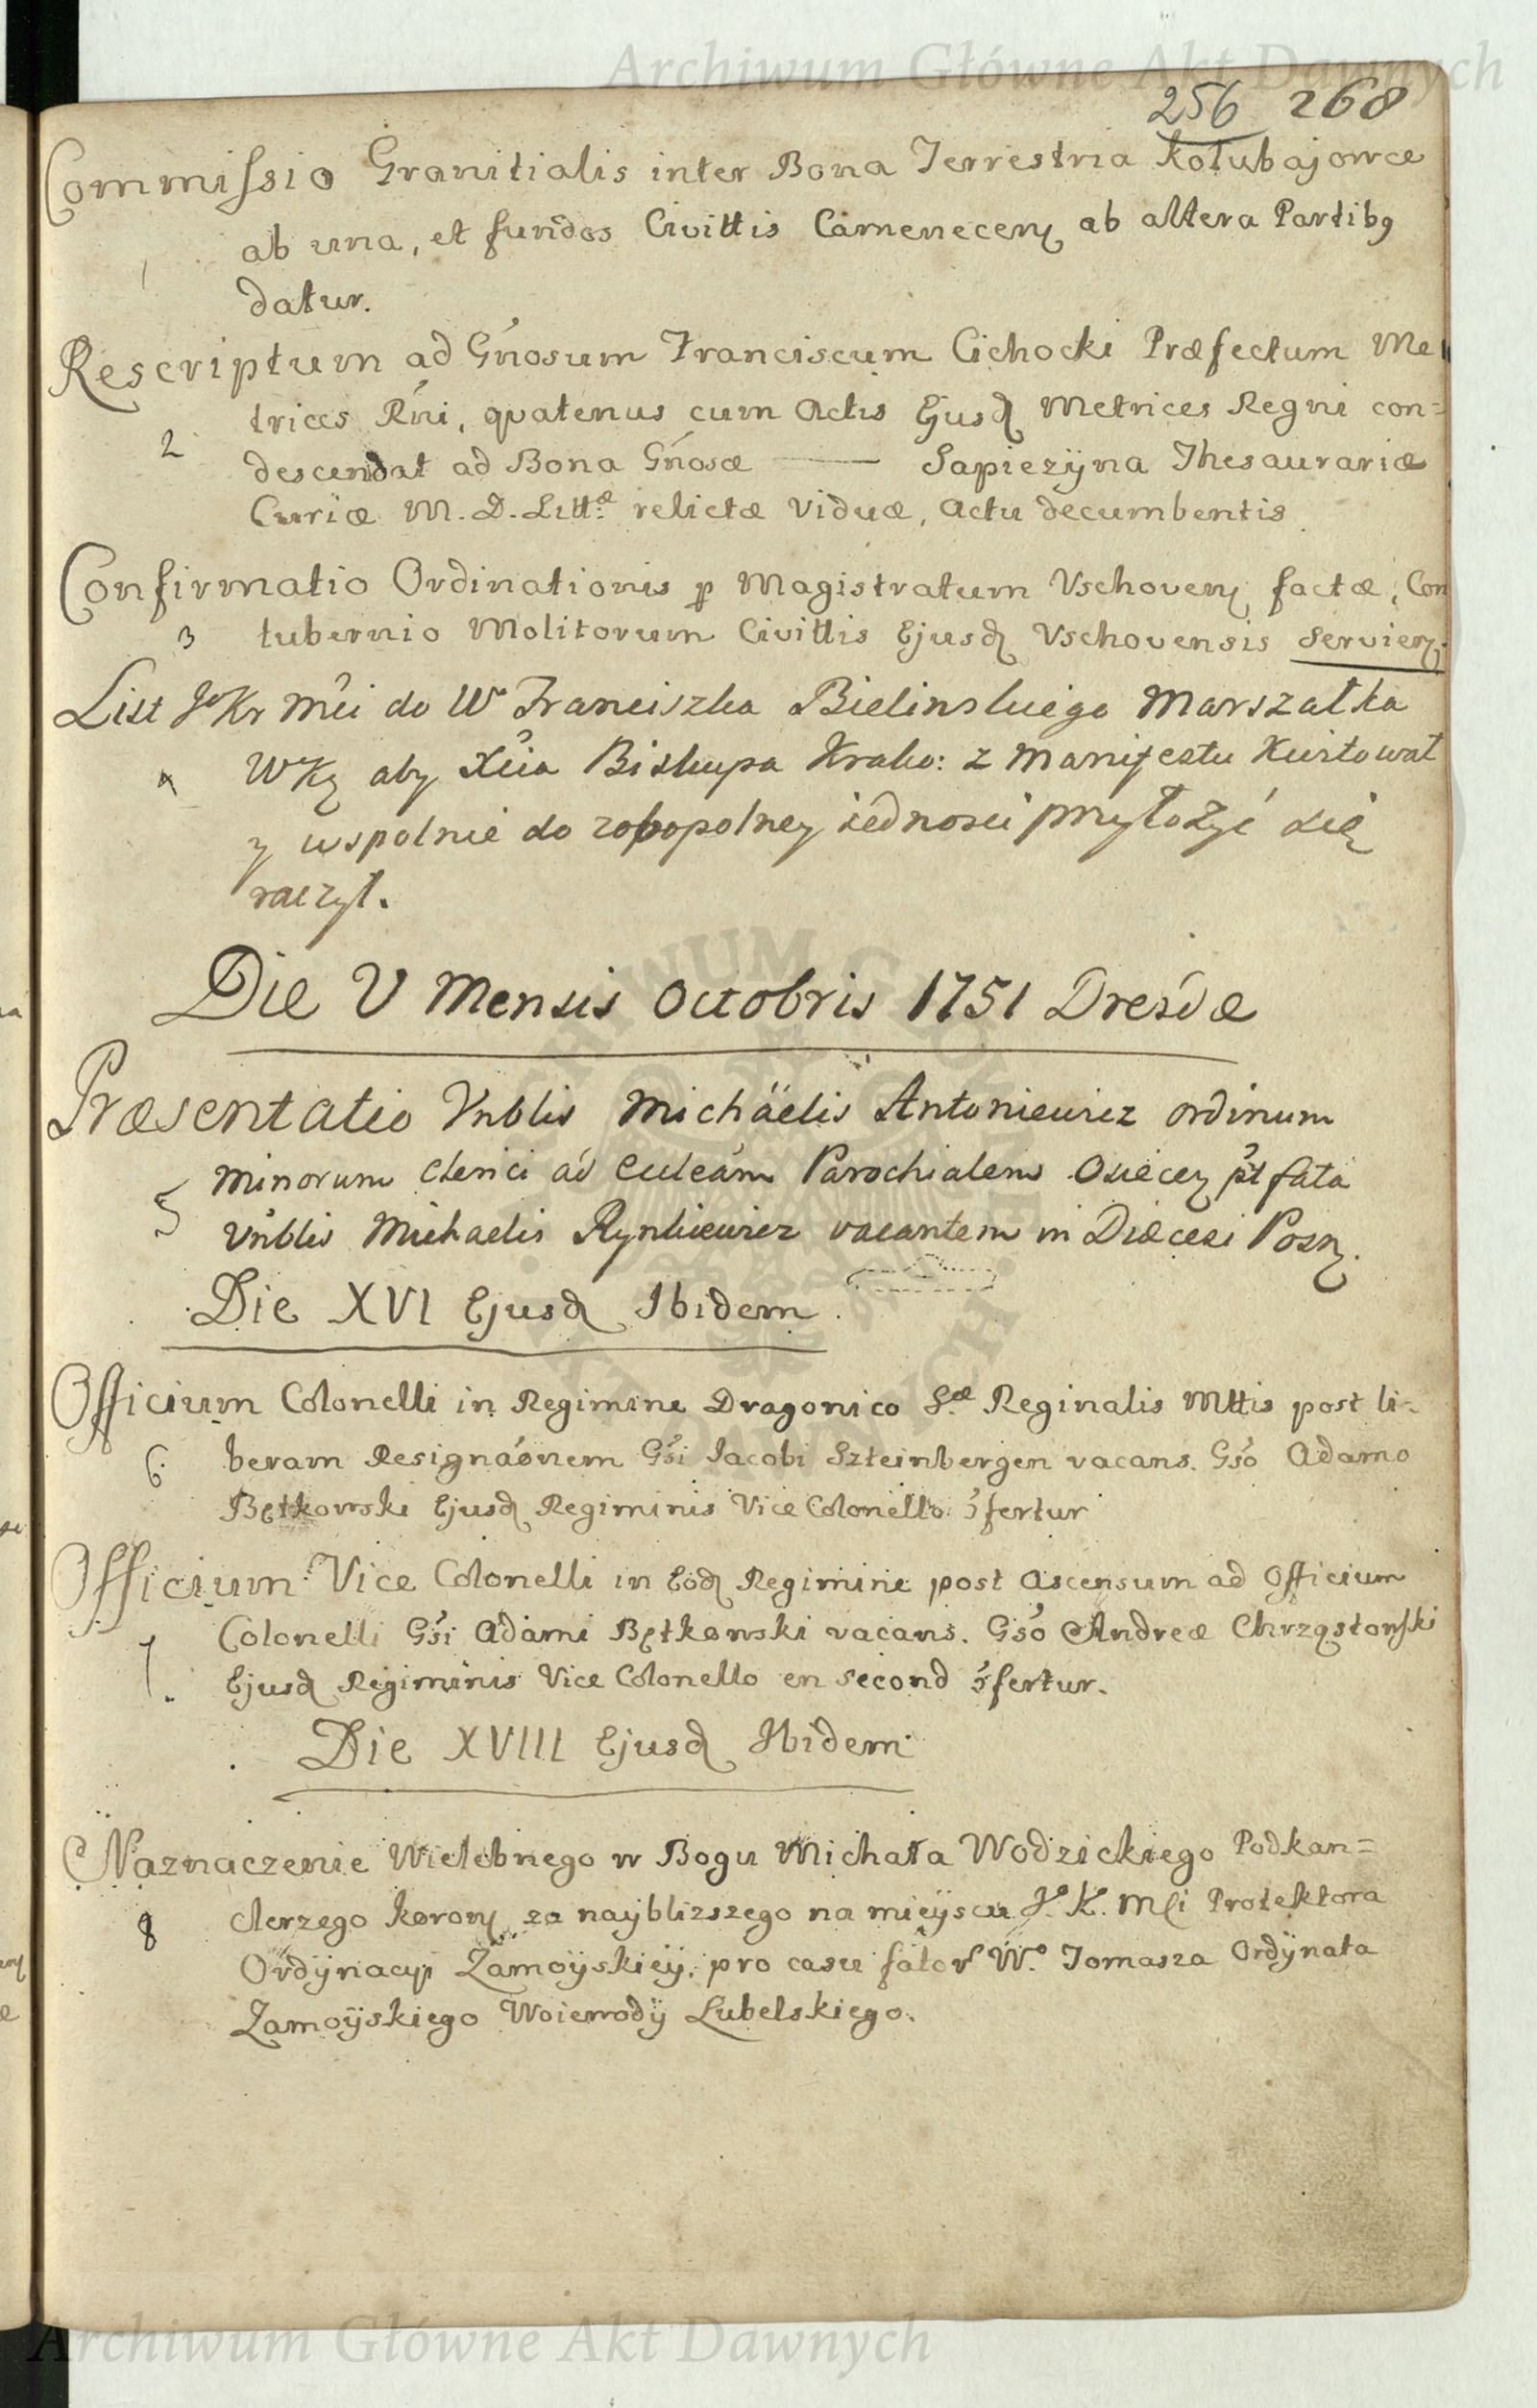 Archiwum Główne Akt Dawnych
256 268
Commissio Granitialis inter Bona Terrestria Kołubajowce
ab una, et fundos Civittis Camenecens ab altera Partibꝯ
datur.
1
Rescriptum ad Gñosum Franciscum Cichocki Præfectum Me
trices Rñi, quatenus cum Actis Ejusd Metrices Regni con=
2 descendat ad Bona Gñosæ —— Sapiezÿna Thesaurariæ
Curiæ M. D. Litt:æ relictæ Viduæ, actu decumbentis
Confirmatio Ordinationis ꝑ Magistratum Vschoven factæ, Con
3 tubernio Molitorum Civittis Ejusd Vschovensis servien.
List Jo Kr Mci do Wo Franciszka Bielinskiego Marszałka
4 WKo aby Xcia Biskupa Krako: z Manifestu Kwitował
y wspolnie do zobopolney iednosci przyłożyć się
raczył.
Die V Mensis Octobris 1751 Dresdæ
Præsentatio Vnblis Michäelis Antoniewicz ordinum
minorum Clerici ad Eccleam Parochialem Osiecen pt fata
5 Vnblis Michaelis Rynkiewicz vacantem in Diæcesi Posn.
Die XVI Ejusd Ibidem.
Officium Colonelli in Regimine Dragonico S.æ Reginalis Mttis post li-
6. beram Resignaónem Gsi Jacobi Szteinbergen vacans. Gso Adamo
Bętkowski Ejusd Regiminis Vice Colonello ɔfertur
Officium Vice Colonelli in Eod Regimine post ascensum ad Officium
Colonelli Gsi Adami Bętkowski vacans. Gso Andreæ Chrząstowski
7. Ejusd Regiminis Vice Colonello en second ɔfertur.
Die XVIII Ejusd Ibidem
Naznaczenie Wielebnego w Bogu Michała Wodzickiego Podkan=
8 clerzego koron za naybliższego na mieÿscu Jo. K. Mci Protektora
Ordÿnacyi Zamoÿskieÿ, pro casu fator Wo. Tomasza Ordÿnata
Zamoÿskiego Woiewodÿ Lubelskiego.
Archiwum Główne Akt Dawnych